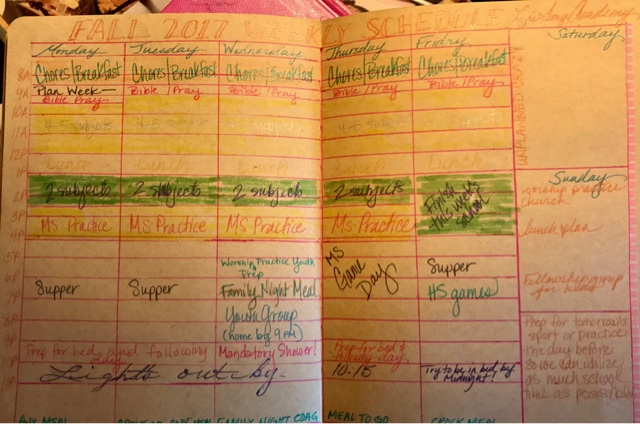 FALL 2017 WEEKLY SCHEDULE
Monday
Tuesday
Wednesday
Thursday
Friday
Saturday
8A
Chores/Breakfast
Chores/Breakfast
Chores/Breakfast
Chores/Breakfast
Chores/Breakfast
9A
Plan Week
Bible Pray
Bible/Pray
Bible/Pray
Bible/Pray
Bible/Pray
10A
4-5 subjects
4-5 subjects
11A
12P
Lunch
Lunch
Lunch
Lunch
1P
2P
2 subjects
2 subjects
2 subjects
2 subjects
Finish
this week's
school
Sunday
worship practice
church
3P
MS Practice
MS Practice
MS Practice
MS Practice
4P
lunch plan
5P
Worship Practice Youth
Prep
MS
Game
Day
Supper
Supper
Supper
Family Night Meal
HS games
Fellowship group
7P
Youth Group
8P
(home by 9 PM)
9P
Prep for bed and following
Mandatory Shower!
Prep for bed &
10.15
Try to be in bed by
Midnight!
Lights out by
Prep for tomorrow's
sport or practice
the day before
so we can utilize
as much school
time as possible
MEAL TO GO